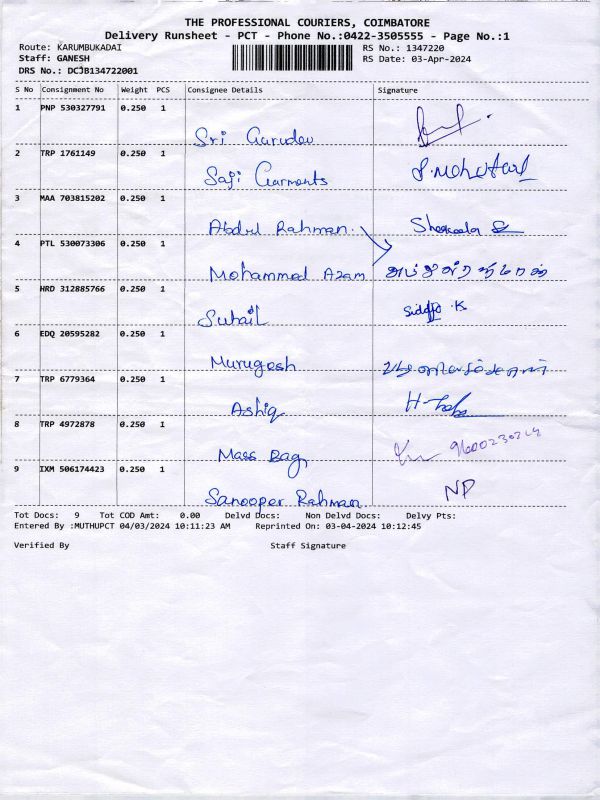 THE PROFESSIONAL COURIERS, COIMBATORE
Delivery Runsheet - PCT - Phone No.:0422-3505555 - Page No.:1
Route: KARUMBUKADAI RS No.: 1347220
Staff: GANESH RS Date: 03-Apr-2024
DRS No.: DCJB134722001
S No Consignment No Weight PCS Consignee Details Signature
1 PNP 530327791 0.250 1
Sri Gurudev
2 TRP 1761149 0.250 1
Safi Garments
3 MAA 703815202 0.250 1
Abdul Rahman.
4 PTL 530073306 0.250 1
Mohammed Azam
5 HRD 312885766 0.250 1 Siddfo .K
Suhail
6 EDQ 20595282 0.250 1
Murugesh
7 TRP 6779364 0.250 1
Ashiq
8 TRP 4972878 0.250 1
Mass Bag
9 IXM 506174423 0.250 1 ND
Sanooper Rahman
Tot Docs: 9 Tot COD Amt: 0.00 Delvd Docs: Non Delvd Docs: Delvy Pts:
Entered By :MUTHUPCT 04/03/2024 10:11:23 AM Reprinted On: 03-04-2024 10:12:45
Verified By Staff Signature